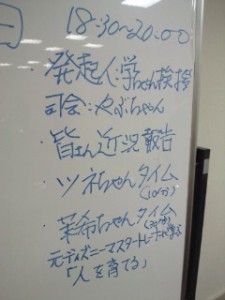 日
18:30~20:00
・発起人:学ちゃん挨拶
司会:やぶちゃん
・皆さん近況報告
・ツネちゃんタイム
(10分)
・茉希ちゃんタイム(30分)
元ディズニーマスタートレーナーが語る
「人を育てる」